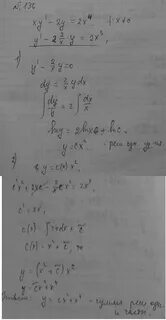 № 136
xy' - 2y = 2x⁴
y' - 2/x y = 2x³,
1)
y' - 2/x y = 0
dy = 2/x y dx
∫ dy/y = 2 ∫ dx/x
ln y = 2 ln x + ln C
y = Cx² -
2)
y = C(x) x²
C'x² + 2xC - 2/x Cx² = 2x³
C' = 2x,
C(x) = ∫ 2x dx + C̃
C(x) = x² + C̃,
y = (x² + C̃) x²
y = C̃x² + x⁴
Ответ: y = Cx² + x⁴ -